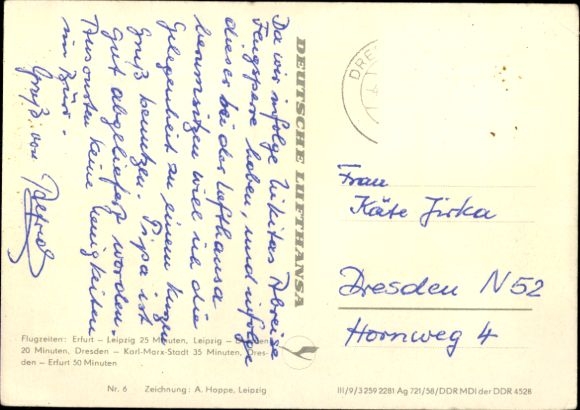 Da wir infolge Nikitas Abreise
Flugsperre haben, und infolge
dieser bei der Lufthansa
herumsitzen will ich die
Gelegenheit zu einem kurzen
Gruß benutzen. Pipa ist
gut abgeliefert worden.
Ansonsten keine Neuigkeiten
im Büro.
Gruß von
DEUTSCHE LUFTHANSA
DRES
Frau
Käte Jirka
Dresden N52
Hornweg 4
Flugzeiten: Erfurt – Leipzig 25 Minuten, Leipzig – Dresden
20 Minuten, Dresden – Karl-Marx-Stadt 35 Minuten, Dres-
den – Erfurt 50 Minuten
Nr. 6 Zeichnung: A. Hoppe, Leipzig
III/9/3 259 2281 Ag 721/58/DDR MDI der DDR 4528